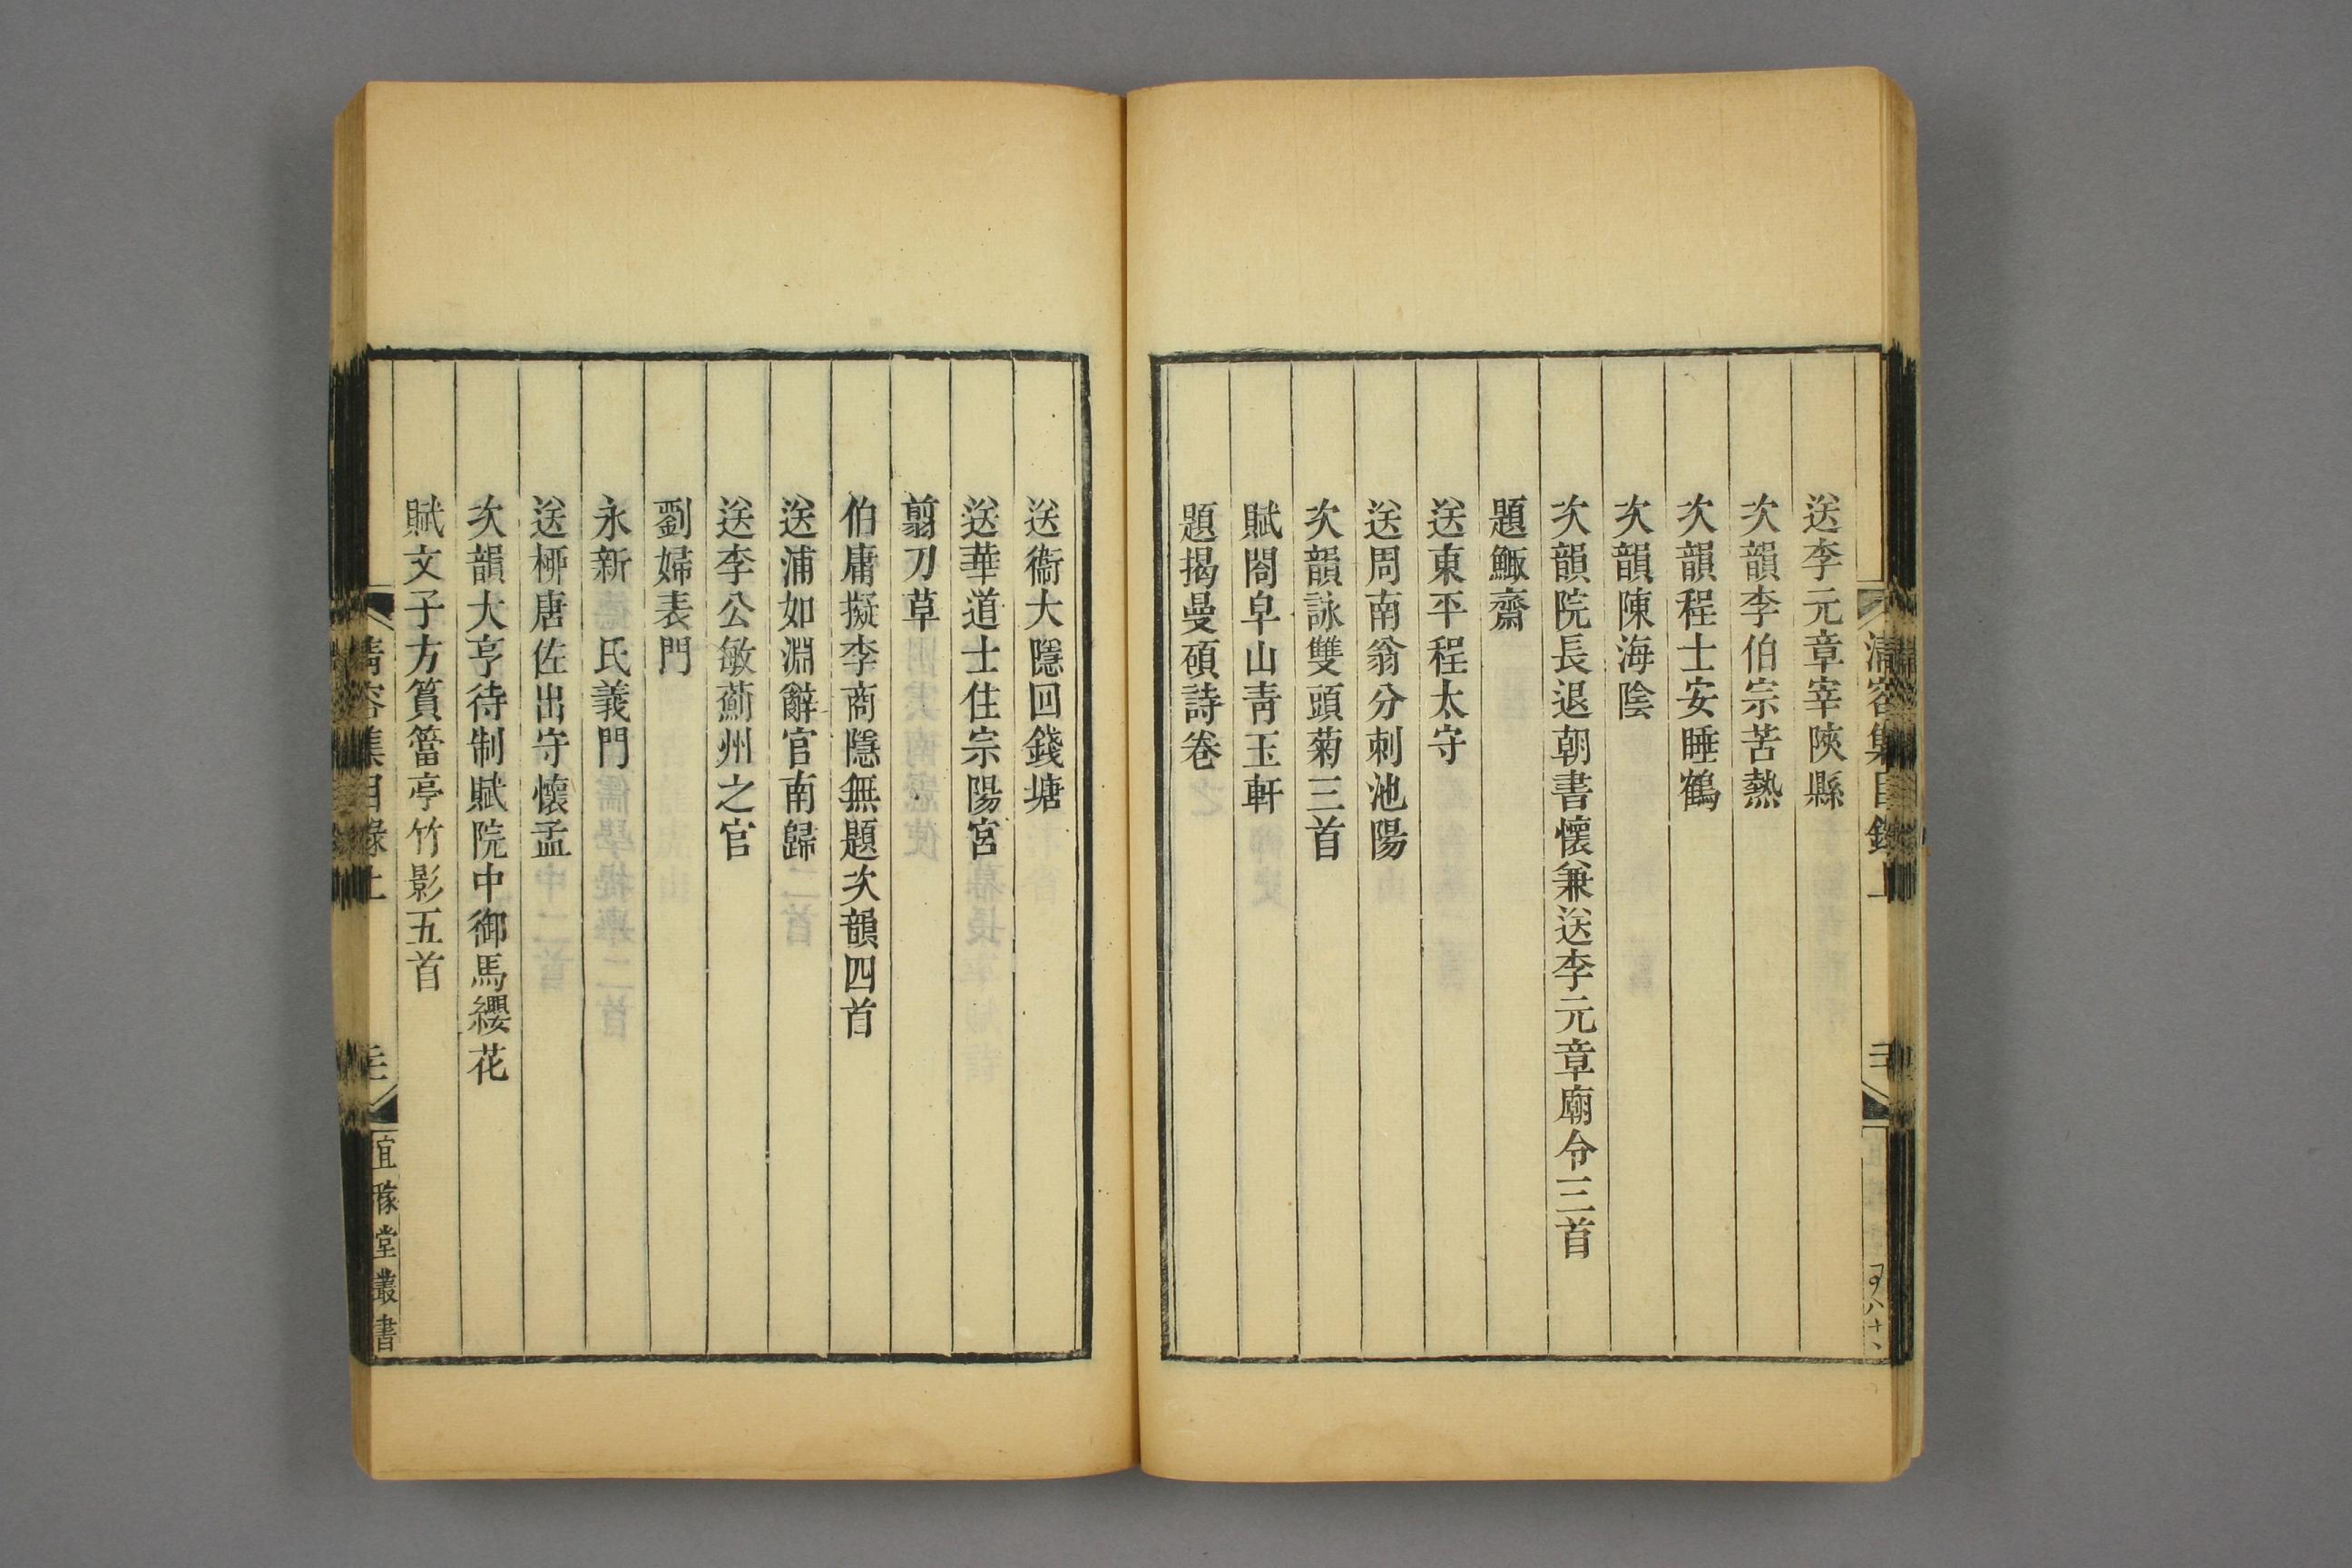 送李元章宰陝縣
次韻李伯宗苦熱
次韻程士安睡鶴
次韻陳海陰
次韻院長退朝書懷兼送李元章廟令三首
題䱷齋
送東平程太守
送周南翁分刺池陽
次韻詠雙頭菊三首
賦閤皁山靑玉軒
題揭曼碩詩卷
送衞大隱回錢塘
送華道士住宗陽宮
翦刀草
伯庸擬李商隱無題次韻四首
送浦如淵辭官南歸
送李公敏薊州之官
劉婦表門
永新 氏義門
送栁唐佐出守懷孟
次韻大亨待制賦院中御馬纓花
賦文子方篔簹亭竹影五首
清容集目錄上
宜稼堂叢書